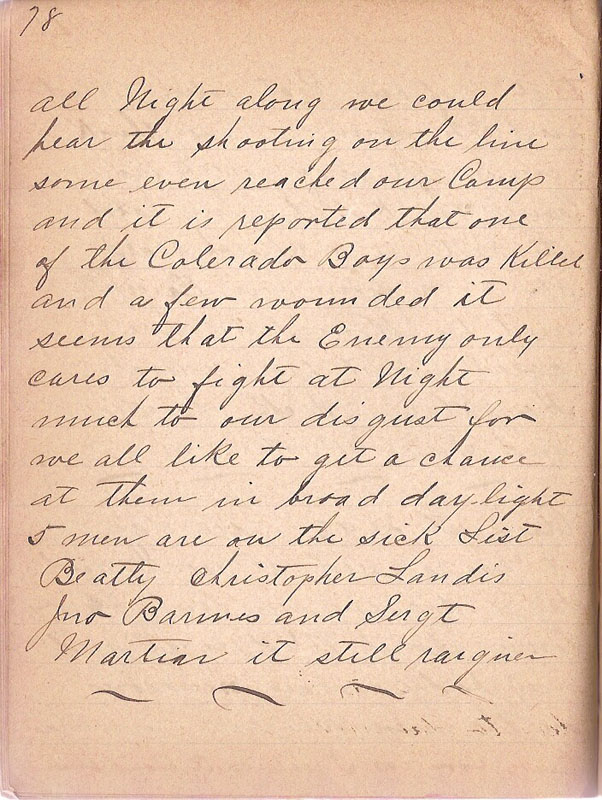 78
all Night along we could
hear the shooting on the line
some even reached our Camp
and it is reported that one
of the Colerado Boys was Killed
and a few wounded it
seems that the Enemy only
cares to fight at Night
much to our disgust for
we all like to get a chance
at them in broad day-light
5 men are on the sick List
Beatty Christopher Landis
Jno Barnes and Sergt
it still